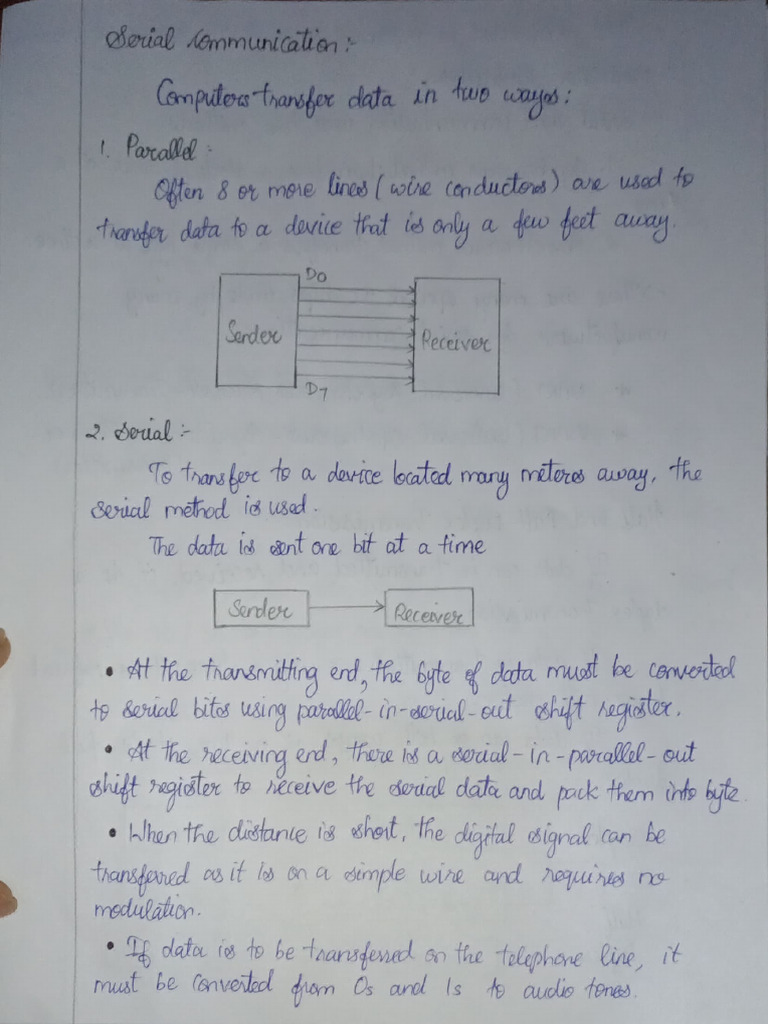 Serial Communication:-
Computers transfer data in two ways:
1. Parallel:-
Often 8 or more lines (wire conductors) are used to
transfer data to a device that is only a few feet away.
D0
Sender
Receiver
D7
2. Serial:-
To transfer to a device located many meters away, the
serial method is used.
The data is sent one bit at a time
Sender
Receiver
• At the transmitting end, the byte of data must be converted
to serial bits using parallel-in-serial-out shift register.
• At the receiving end, there is a serial-in-parallel-out
shift register to receive the serial data and pack them into byte.
• When the distance is short, the digital signal can be
transferred as it is on a simple wire and requires no
modulation.
• If data is to be transferred on the telephone line, it
must be converted from 0s and 1s to audio tones.